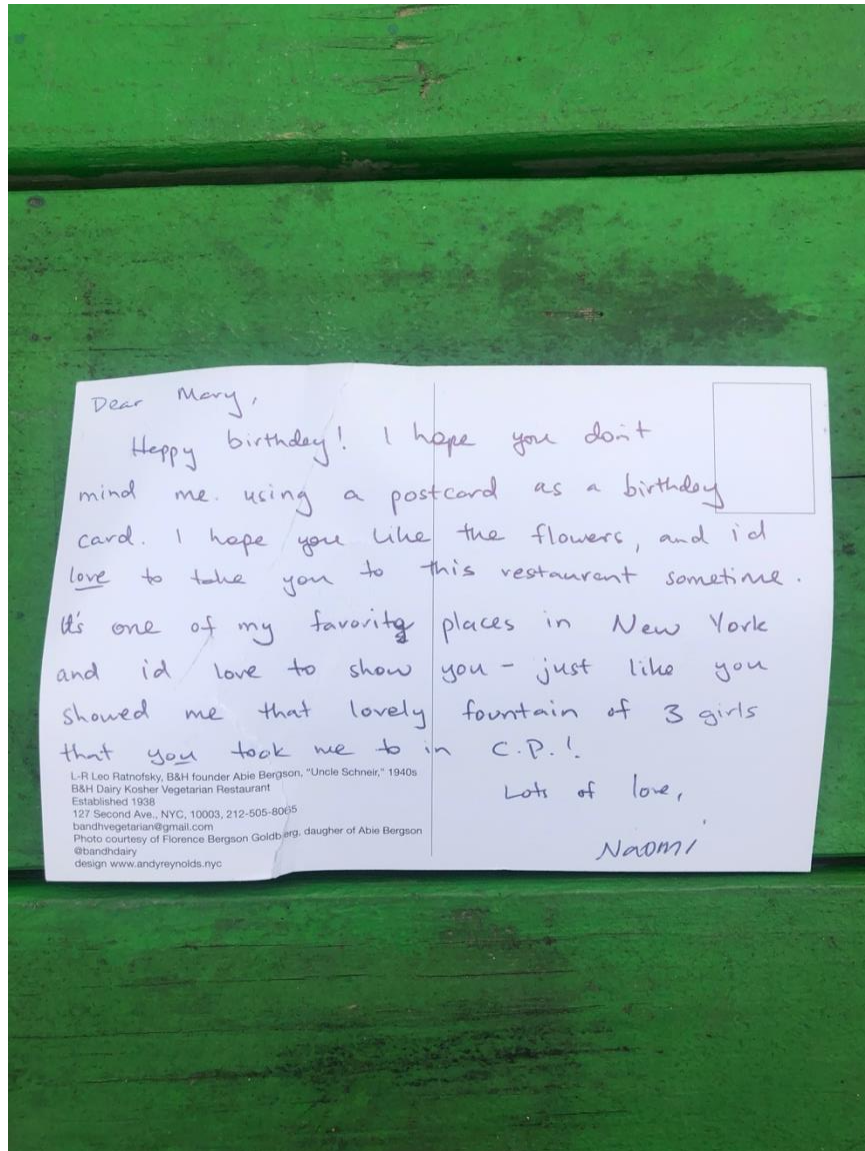 Dear Mary,
Happy birthday! I hope you don't
mind me using a postcard as a birthday
card. I hope you like the flowers, and i'd
love to take you to this restaurant sometime.
It's one of my favorite places in New York
and i'd love to show you - just like you
showed me that lovely fountain of 3 girls
that you took me to in C.P.!
Lots of love,
Naomi
L-R Leo Ratnofsky, B&H founder Abie Bergson, "Uncle Schneir," 1940s
B&H Dairy Kosher Vegetarian Restaurant
Established 1938
127 Second Ave., NYC, 10003, 212-505-8065
bandhvegetarian@gmail.com
Photo courtesy of Florence Bergson Goldberg, daugher of Abie Bergson
@bandhdairy
design www.andyreynolds.nyc